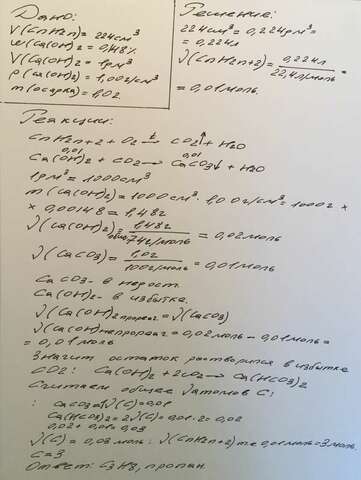 Дано:
V(CnH2n)= 224см³
w(Ca(OH)2 = 0,148%
V(Ca(OH)2 = 1рм³
ρ(Ca(OH)2 = 1,00г/см³
m(осадка) = 1,02
Решение:
224см³ = 0,224рм³=
= 0,224л
√(CnH2n+2) = 0,224л / 22,4л/моль =
= 0,01моль
Реакции:
CnH2n+2 + O2 →t CO2↑ + H2O
0,01 0,01
Ca(OH)2 + CO2 → CaCO3↓ + H2O
1рм³ = 1000см³
m(Ca(OH)2) = 1000см³ · 1,00г/см³ = 1000г ×
× 0,00148 = 1,48г
√(Ca(OH)2)общ = 1,48г / 74г/моль = 0,02моль
√(CaCO3) = 1,02 / 100г/моль = 0,01моль
CaCO3 - в недост.
Ca(OH)2 - в избытке.
√(Ca(OH)2прореаг = √(CaCO3)
√(Ca(OH)непрореаг = 0,02моль - 0,01моль =
= 0,01моль
Значит остаток растворился в избытке
CO2: Ca(OH)2 + 2CO2 → Ca(HCO3)2
Считаем общее √атомов C:
: CaCO3 = √(C) = 0,01
Ca(HCO3)2 = 2√(C) = 0,01·2 = 0,02
0,02 + 0,01 = 0,03
√(C) = 0,03моль : √(CnH2n+2) те 0,01моль = 3моль.
C = 3
Ответ: C3H8, пропан.